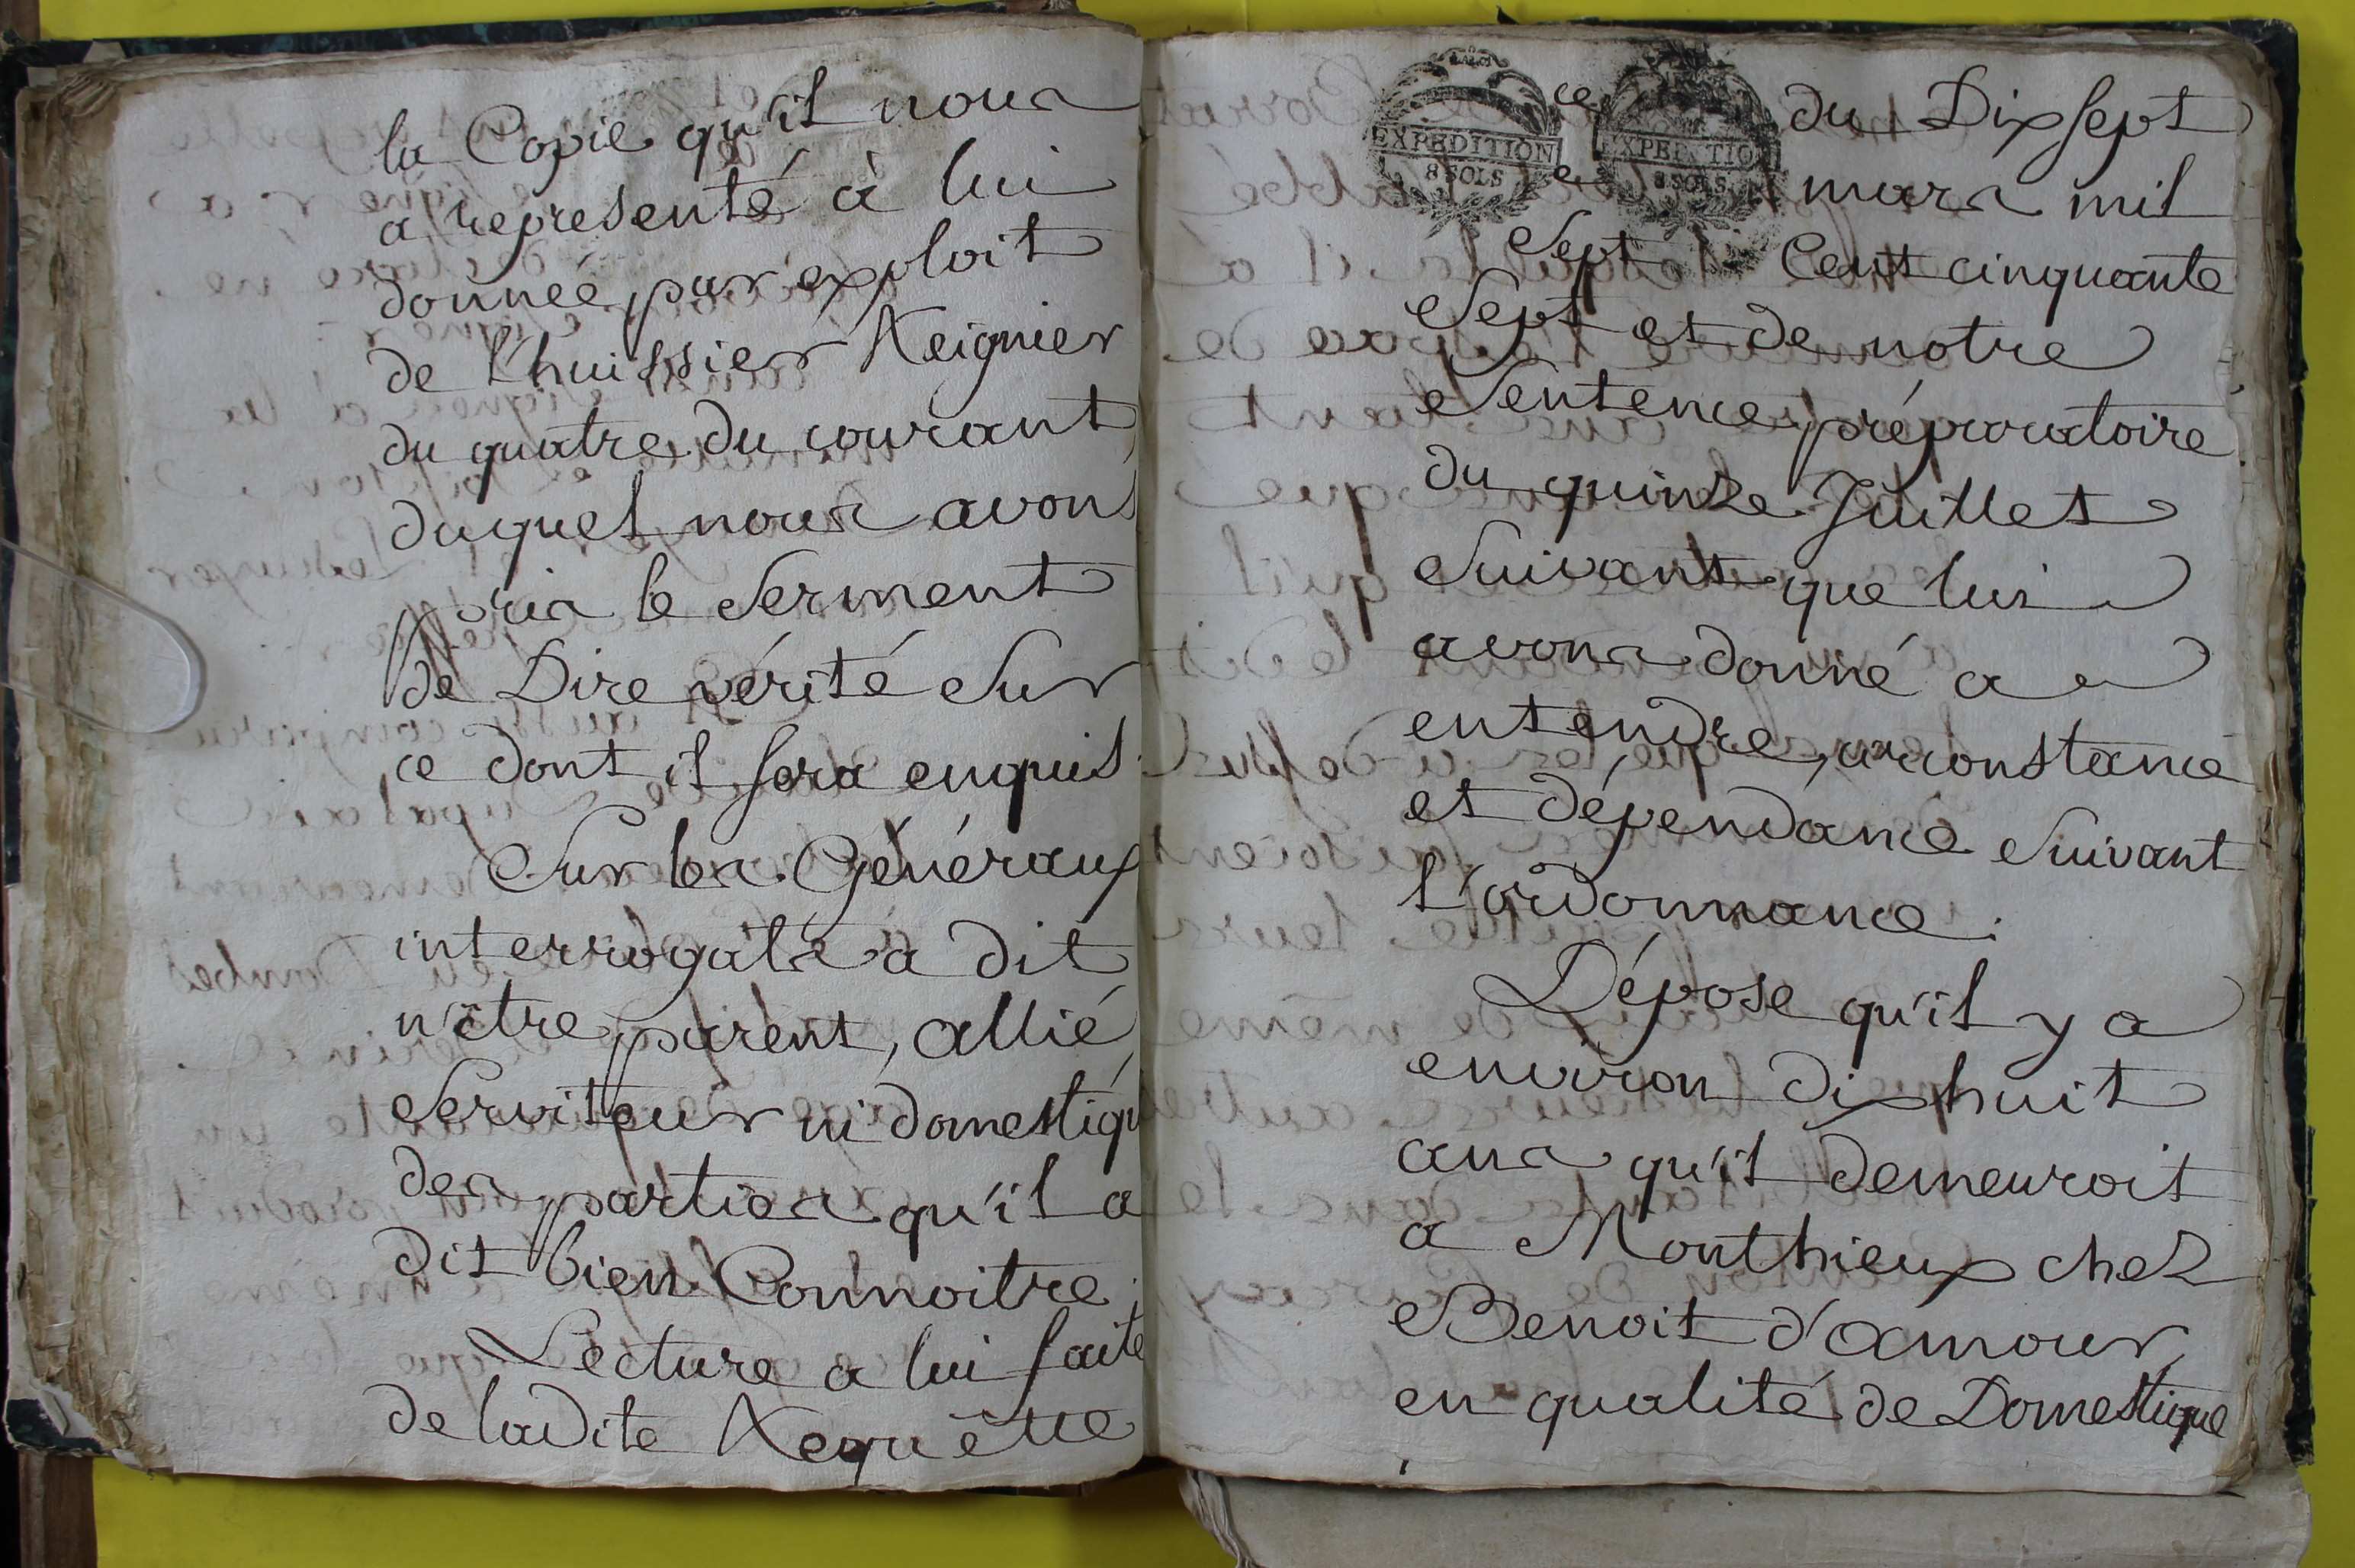 la Copie qu'il nous
a representé à lui
donnée par exploit
de l'huissier Reignier
du quatre du courant
duquel nous avons
pris le Serment
de Dire vérité Sur
ce dont il sera enquis
Sur les Généraux
interrogats a dit
n'être parent, allié,
Serviteur ni domestiqu
des parties qu'il a
dit bien Connoitre ;
Lecture a lui faite
de ladite Requête
EXPEDITION
8 SOLS
EXPEDITIO
8 SOLS
ce du Dix sept
mars mil
Sept Cent cinquante
Sept et de notre
Sentence préparatoire
du quinze Juillet
Suivant que lui
avons donné a
entendre, circonstance
et dépendance Suivant
l'ordonnance.
Dépose qu'il y a
environ dix huit
ans qu'il demeuroit
a Monthieux chez
Benoit d'amour
en qualité de Domestique